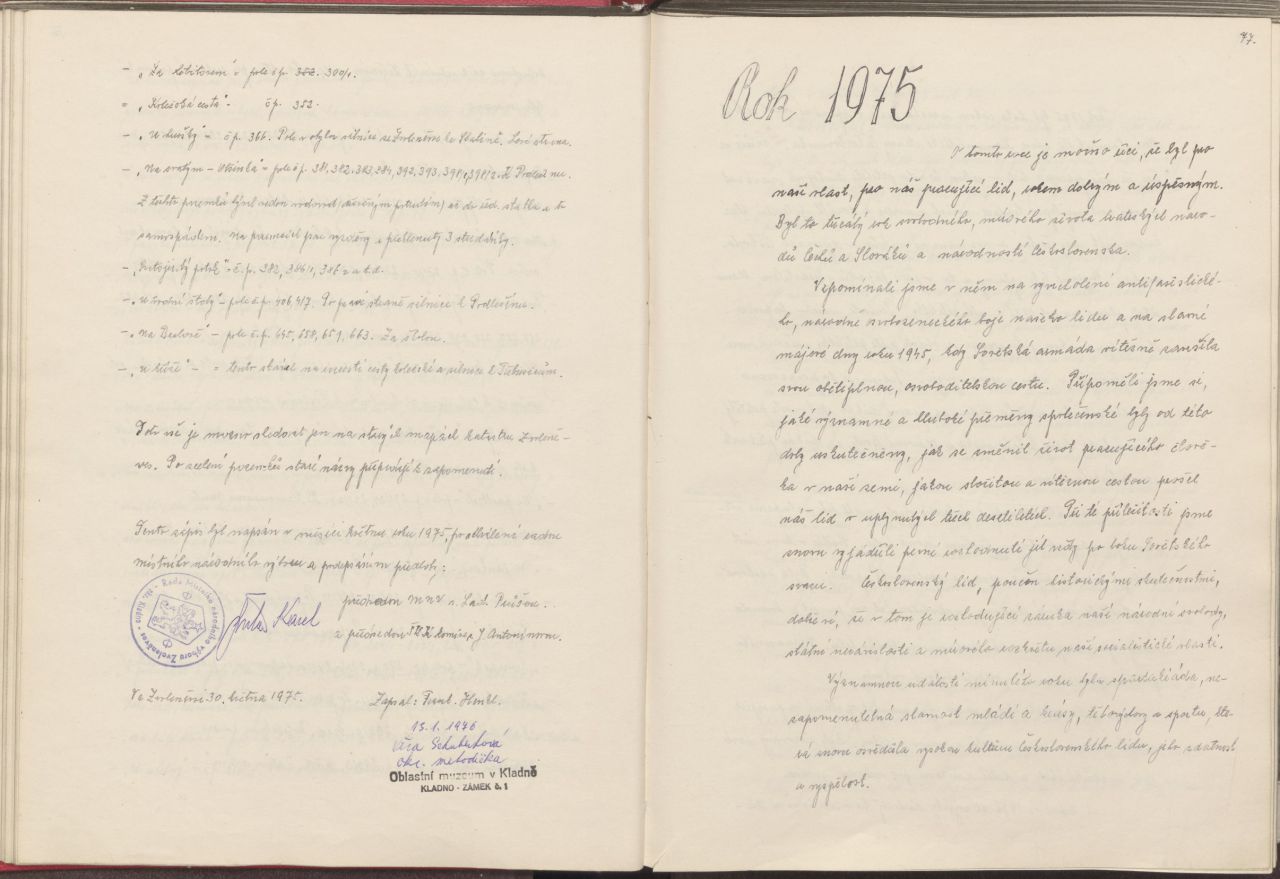 - „Za
pole čp. 352. 300/1.
= „Kolečská cesta" - čp. 352.
- čp. 366. Pole v ohybu silnice ze Zvoleněvsi ke Slatině. Levá strana.
- „Na svatým - Vršínka" = pole čp. 381, 382, 383, 384, 392, 393, 398/1, 398/2. K Podlešínu.
Z těchto pozemků býval veden vodovod až do úd. statku a to
samospádem. Na pozemcích jsou vyvěry a překlenuty 3 studánky.
- potok" - č.p. 382, 386/1, 386 v a t.d.
- štoly" - pole č.p. 406, 417. Po pravé straně silnice k Podlešínu.
- „Na - pole č.p. 645, 658, 659, 663. Za školou.
- = tento stával na rozcestí cesty kolečské a silnice k
Toto vše je možno sledovat jen na starých mapách katastru Zvoleně-
ves. Po scelení pozemků staré názvy přicházejí k zapomenutí.
Tento zápis byl napsán v měsíci květnu roku 1975, po schválení radou
místního národního výboru a podepsáním předlohy:
předsedou MNV s. Lad. Průšou.
a předsedou komise J. Antonínovou.
Rada Místního národního výboru Zvoleněves - okr. Kladno
Karel
Ve Zvoleněvsi 30. května 1975. Zapsal: Frant. Henzl.
13.1.1976
Věra Schubertová
okr. metodička
Oblastní muzeum v Kladně
KLADNO - ZÁMEK č. 1
77.
Rok 1975
O tomto roce je možno říci, že byl pro
naši vlast, pro náš pracující lid, rokem dobrým a úspěšným.
Byl to třicátý rok svobodného, mírového života bratrských náro-
dů Čechů a Slováků a národností Československa.
Vzpomínali jsme v něm na vyvrcholení antifašistické-
ho, národně osvobozeneckého boje našeho lidu a na slavné
májové dny roku 1945, kdy Sovětská armáda vítězně završila
svou obětiplnou, osvoboditelskou cestu. Připoměli jsme si,
jaké významné a hluboké přeměny společenské byly od této
doby uskutečněny, jak se změnil život pracujícího člově-
ka v naší zemi, jakou složitou a vítěznou cestou prošel
náš lid v uplynulých třech desetiletích. Při té příležitosti jsme
znovu vyjádřili pevné rozhodnutí jít vždy po boku Sovětského
svazu. Československý lid, poučen historickými skutečnostmi,
dobře ví, že v tom je rozhodující záruka naší národní svobody,
státní nezávislosti a mírového rozkvětu naší socialistické vlasti.
Významnou událostí minulého roku byla spartakiáda, ne-
zapomenutelná slavnost mládí a krásy, tělovýchovy a sportu, kte-
rá znovu osvědčila vysokou kulturu československého lidu, jeho zdatnost
a vyspělost.